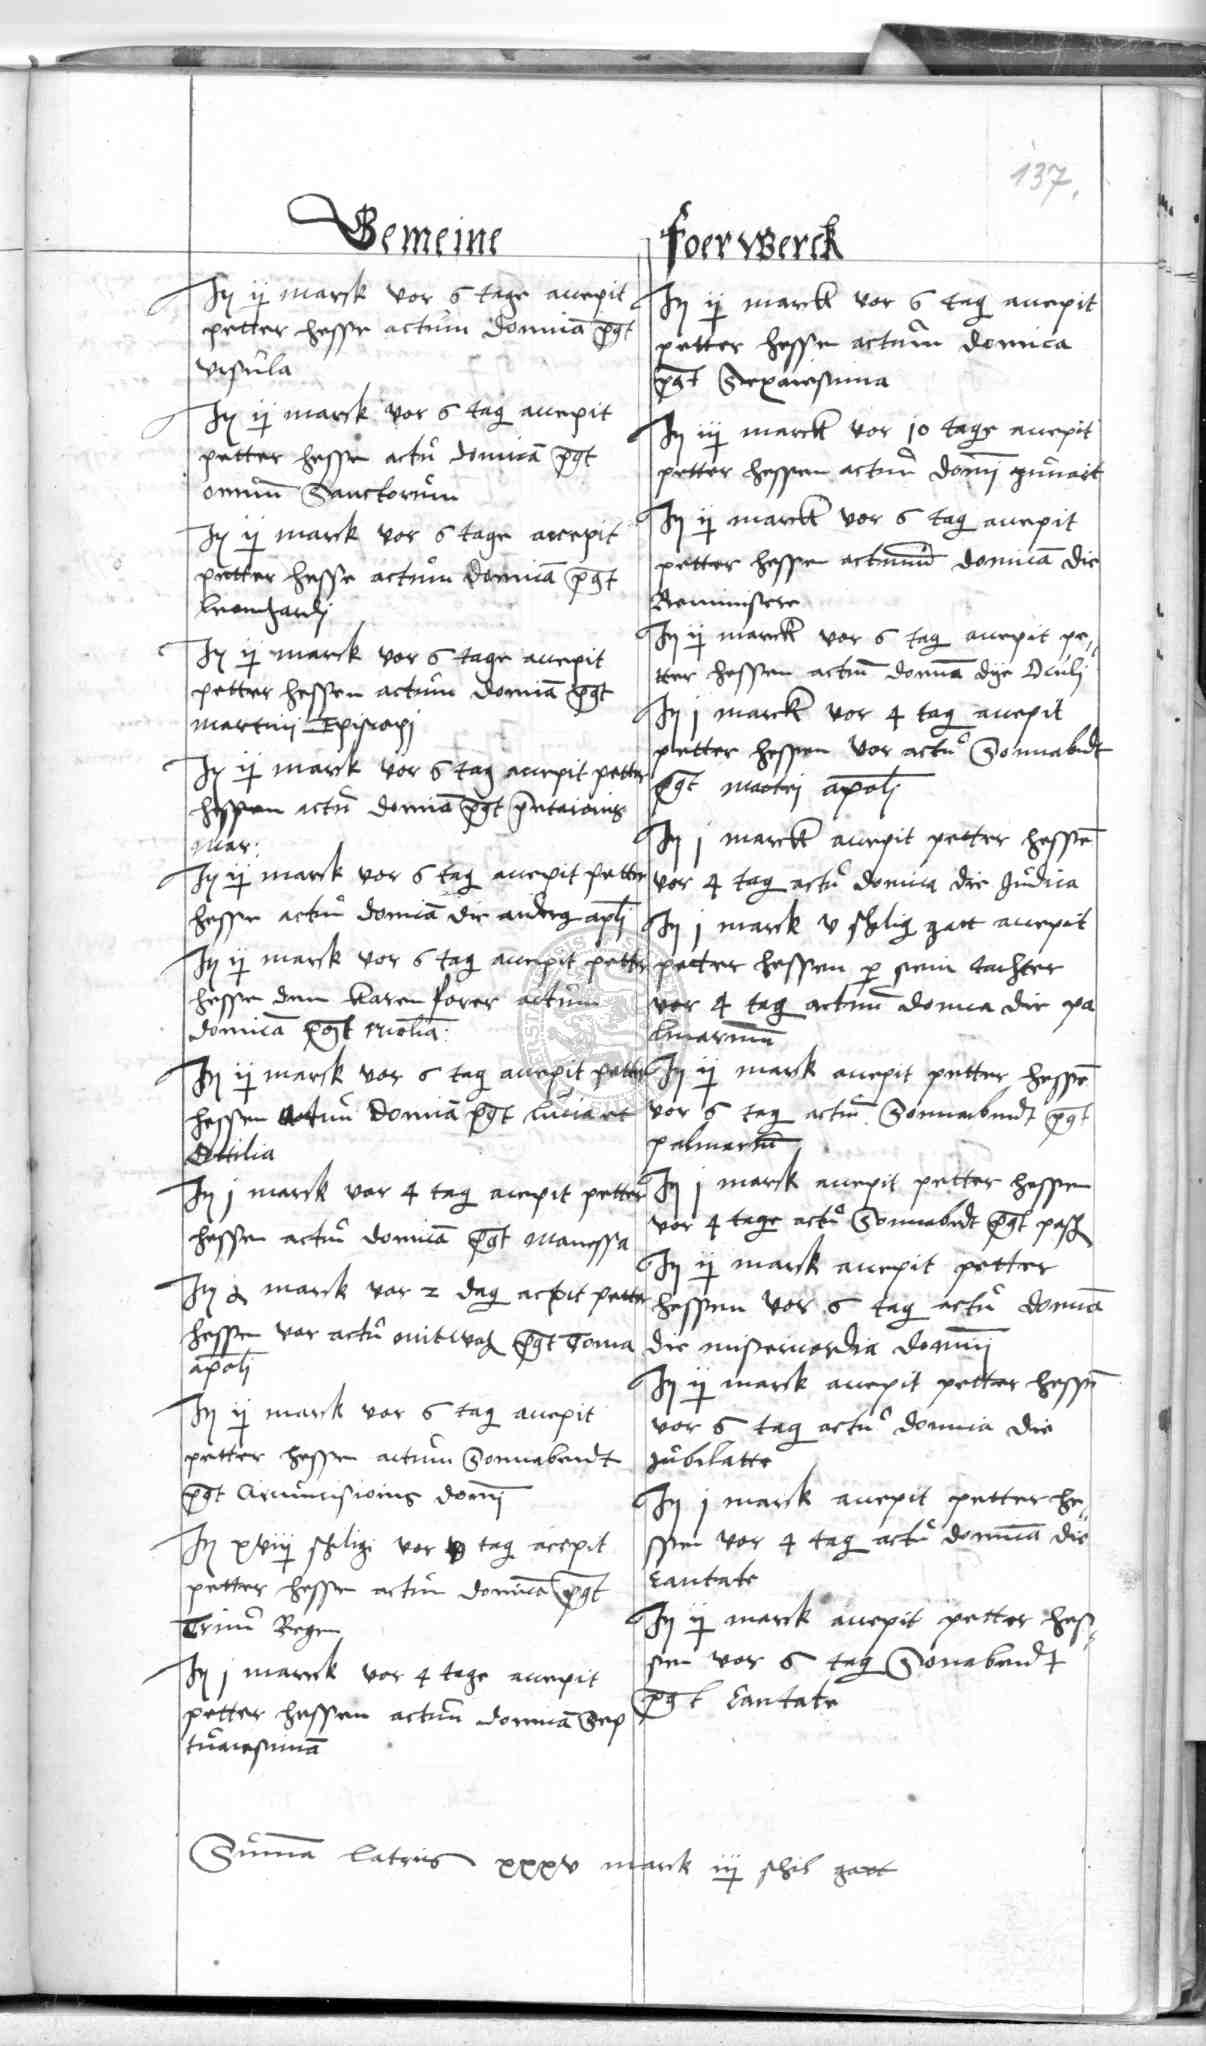 137.
Gemeine
Jt ij marck vor 6 tage accepit
petter hesse actum domica pqt
ursula
Jt ij marck vor 6 tag accepit
petter hessen actu domica pqt
omniu Sanctorum
Jt ij marck vor 6 tage accepit
petter hesse actum domica pqt
leonhardi
Jt ij marck vor 6 tage accepit
petter hessen actum domica pqt
martini Episcopi
Jt ij marck vor 6 tag accepit petter
hessen actu domica pqt
Mar:
Jt ij marck vor 6 tag accepit petter
hesse actu domica die apli
Jt ij marck vor 6 tag accepit petter
hesse dem karen forer actum
domica pqt
Jt ij marck vor 6 tag accepit petter
hessen actum domica pqt lucia et
Ottilia
Jt j marck vor 4 tag accepit petter
hessen actu domica pqt
Jt marck vor 2 dag acpit petter
hessen vor actu mitwoch pqt Toma
apoli
Jt ij marck vor 6 tag accepit
petter hessen actum Sonnabendt
pqt Circumcisionis domi
Jt xviij schilig vor tag acepit
petter hessen actum domica pqt
Trium Regen
Jt j marck vor 4 tage accepit
petter hessen actum domica Sep
tuacesima
foerwerck
Jt ij marck vor 6 tag accepit
petter hessen actum domica
pqt Sexacesima
Jt iij marck vor 10 tage accepit
petter hessen actum domi
Jt ij marck vor 6 tag accepit
petter hessen actum domica die
Reminiscere
Jt ij marck vor 6 tag accepit pe-
tter hessen actum domica dye Oculi
Jt j marck vor 4 tag accepit
petter hessen vor actu Sonnabndt
pqt apoli
Jt j marck accepit petter hesse
vor 4 tag actu domica die Judica
Jt j marck v schilig accepit
petter hessen p sein tachter
vor 4 tag actum domica die pa
lmarum
Jt ij marck accepit petter hesse
vor 6 tag actum Sonnabendt pqt
palmarum
Jt j marck accepit petter hessen
vor 4 tage actu Sonnabedt pqt pasch
Jt ij marck accepit petter
hessen vor 6 tag actu domica
die misericordia domini
Jt ij marck accepit petter hessen
vor 6 tag actu domica die
jubilatte
Jt j marck accepit petter he-
ssen vor 4 tag actu domica die
Cantate
Jt ij marck accepit petter hes-
sen vor 6 tag Sonabendt
pqt Cantate
Suma lateris xxxv marck iij schil